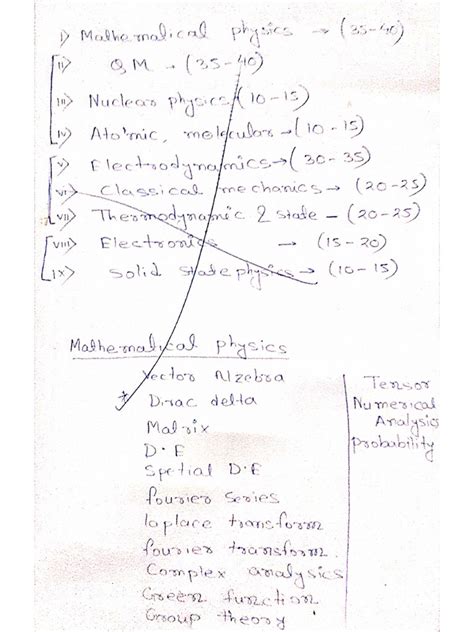 i) Mathematical physics → (35-40)
ii) QM → (35-40)
iii) Nuclear physics (10-15)
iv) Atomic, molecular → (10-15)
v) Electrodynamics → (30-35)
vi) Classical mechanics → (20-25)
vii) Thermodynamic & state - (20-25)
viii) Electronics → (15-20)
ix) Solid state physics → (10-15)
Mathematical physics
Vector Alzebra
* Dirac delta
Matrix
D.E
Spetial D.E
fourier series
laplace transform
fourier transform.
Complex analysics
Green function
Group theory
Tensor
Numerical
Analysis
probability